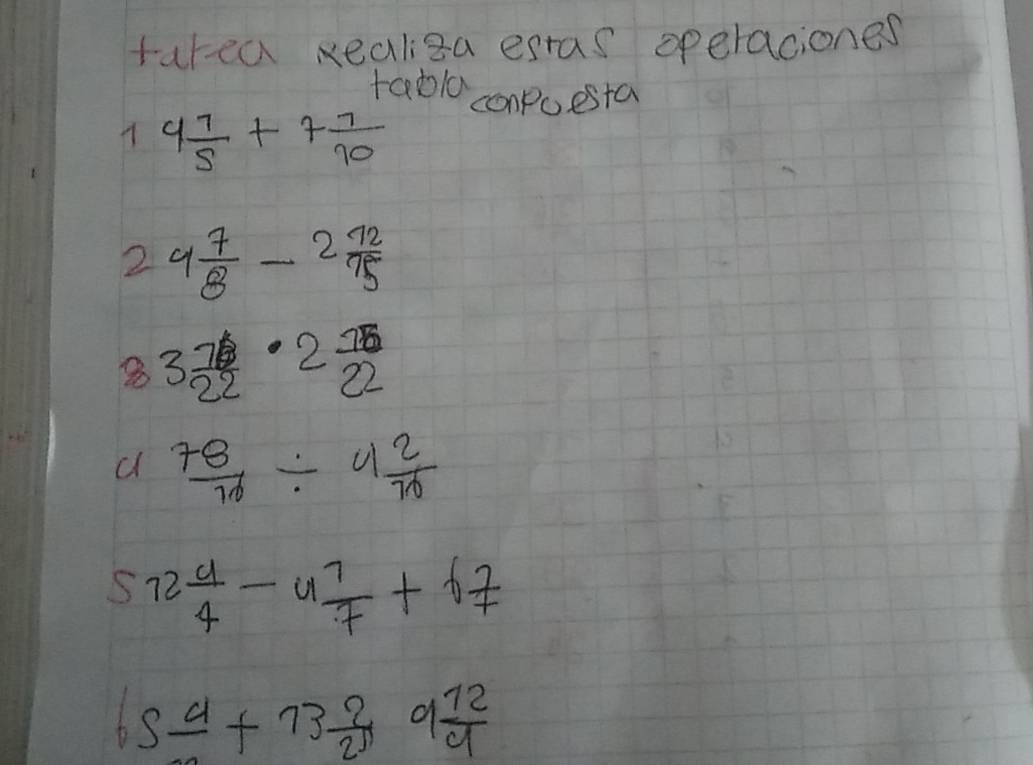 tarea realiza estas operaciones
tabla conpuesta
1 9 1/5 + 7 1/10
2 9 7/8 - 2 12/15
3 3 16/22 · 2 15/22
4 78/10 ÷ 4 2/10
5 12 4/4 - 4 1/7 + 6
6 5 + 13 9 12/9